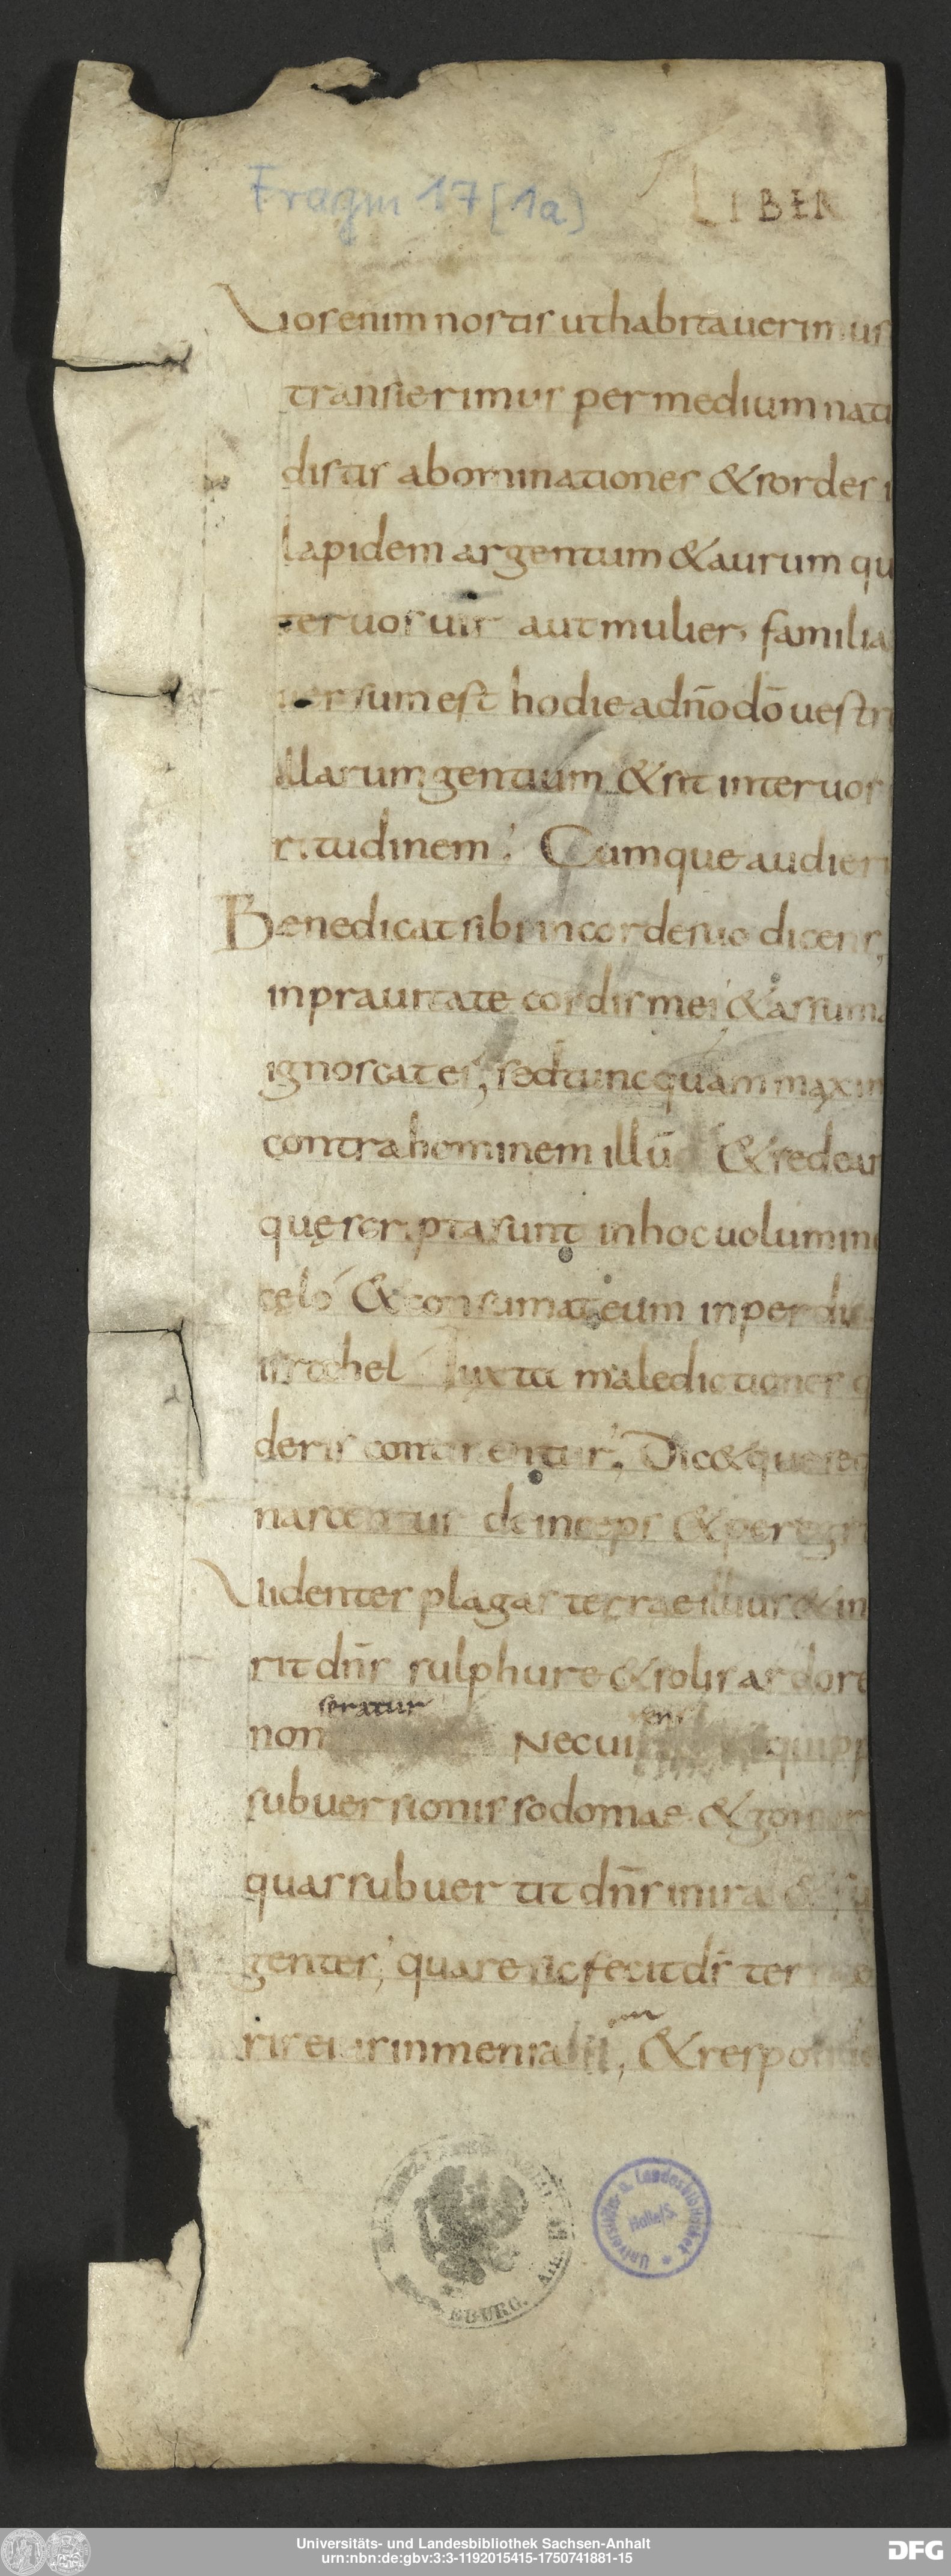 Fragm 17 [1a]
LIBER
Uos enim nostis ut habitauerimus
transierimus per medium nati
distis abominationes & sordes i
lapidem argentum & aurum qu
ter uos uir aut mulier, familia
uersum est hodie a dn̄o dō uestr
illarum gentium & sit inter uos
ritudinem. Cumque audieri
Benedicat sibi in corde suo dicens,
in prauitate cordis mei & assuma
ignoscat ei, sed tunc quam maxim
contra hominem illū & sedeant
quę scripta sunt in hoc uolumine
cęlo & consumat eum in perdi
israhel Iuxta maledictiones q
deris continentur, Dicetque seq
nascentur deinceps & peregri
Uidentes plagas terrae illius & in
rit dn̄s sulphure & solis ardore
non seratur Nec ui quipp
subuersionis sodomae & gomor
quas subuertit dn̄s in ira & fu
gentes, quare sic fecit dn̄s terr
ris eius inmensa , & respond
EBURG.
Universitäts- u. Landesbibliothek
Halle/S.
Universitäts- und Landesbibliothek Sachsen-Anhalt
urn:nbn:de:gbv:3:3-1192015415-1750741881-15
DFG